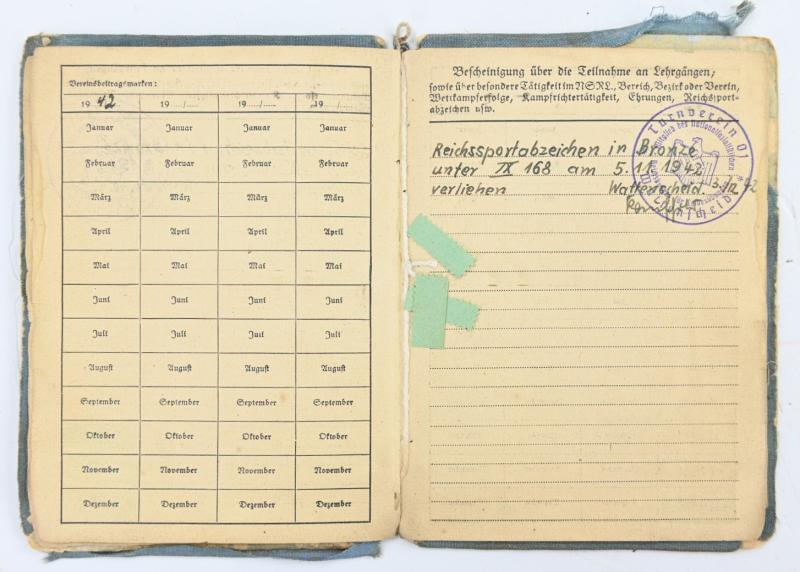 Vereinsbeitragsmarken:
19 42 19 .../... 19 .../... 19 .../...
Januar Januar Januar Januar
Februar Februar Februar Februar
März März März März
April April April April
Mai Mai Mai Mai
Juni Juni Juni Juni
Juli Juli Juli Juli
August August August August
September September September September
Oktober Oktober Oktober Oktober
November November November November
Dezember Dezember Dezember Dezember
Bescheinigung über die Teilnahme an Lehrgängen,
sowie über besondere Tätigkeit im NSRL., Bereich, Bezirk oder Verein,
Wettkampferfolge, Kampfrichtertätigkeit, Ehrungen, Reichssport-
abzeichen usw.
Reichssportabzeichen in Bronze
unter IX 168 am 5.11.1942
verliehen Wattenscheid. 3.XII 42
Turnverein 01
Mitglied des Nationalsozialistischen
Wattenscheid